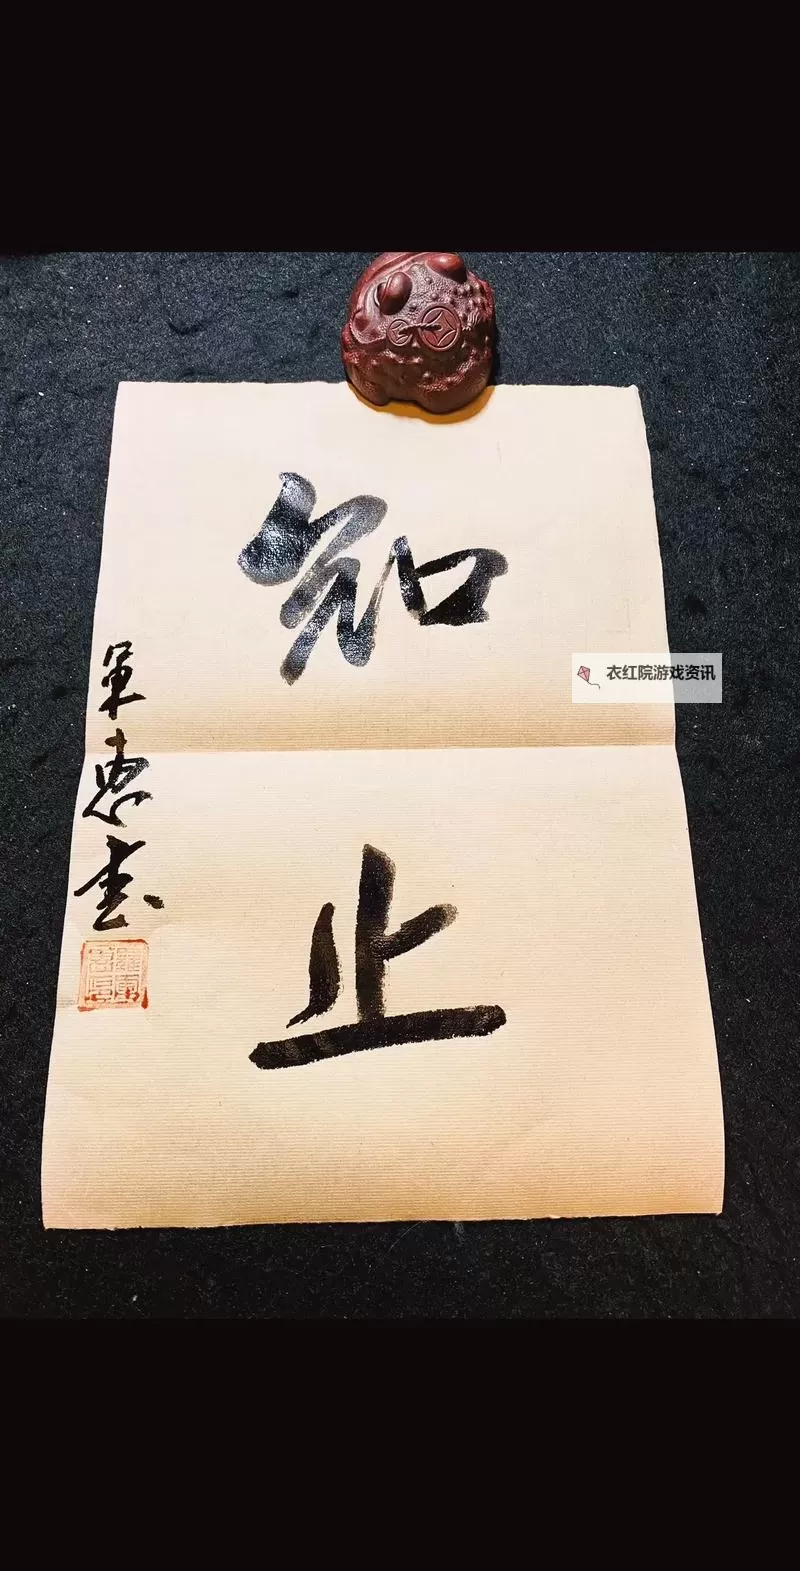 知
止
军惠书
衣红院游戏资讯